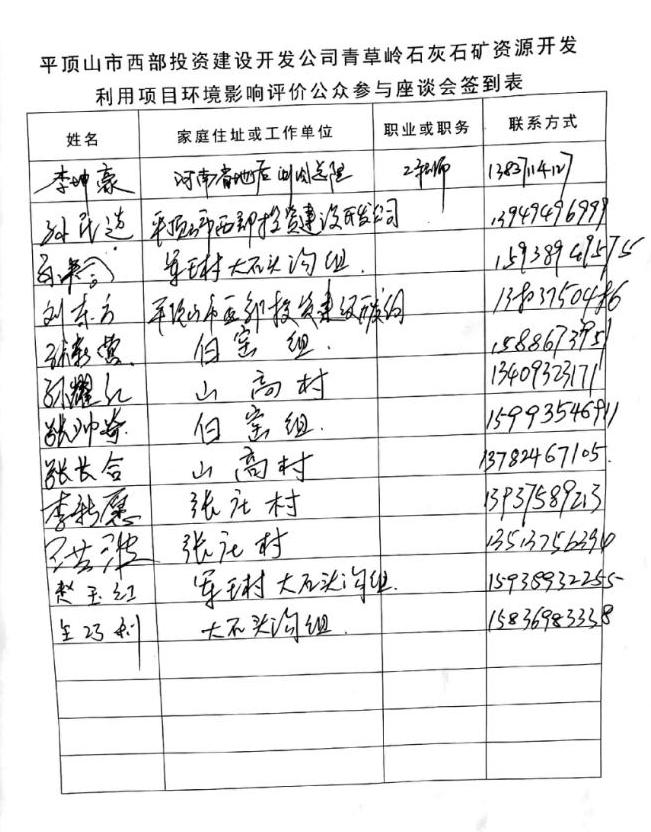 平顶山市西部投资建设开发公司青草岭石灰石矿资源开发
利用项目环境影响评价公众参与座谈会签到表
姓名 家庭住址或工作单位 职业或职务 联系方式
李坤豪 河南省地 工程师
平顶山市西部投资建设开发公司 13949496999
军王村大石头沟组. 15938949575
刘东方 平顶山市西部投资建设开发公司 13837504
伯窑组.
孙耀红 山高村 13409323171
张帅奇 伯窑组. 15993546911
张长合 山高村 13782467105.
李新愿 张庄村 13937589213
张庄村
赵玉红 军王村大石头沟组. 15938932255
大石头沟组. 15836983338